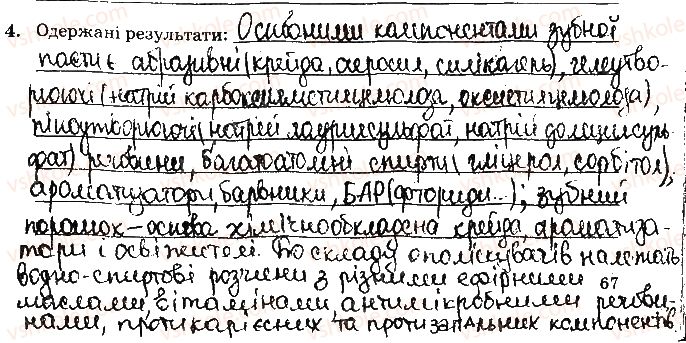 4. Одержані результати: Основними компонентами зубної
пасти є абразивні (крейда, аеросил, силікагель), гелеутво-
рюючі (натрій карбоксиметилцелюлоза, оксиетилцелюлоза),
піноутворюючі (натрій лаурилсульфат, натрій додецилсуль-
фат) речовини, багатоатомні спирти (гліцерол, сорбітол),
ароматизатори, барвники, БАР (фториди...); зубний
порошок – основа хімічнообкладена крейда, ароматиза-
тори і освіжителі. До складу ополіскувачів належать
водно-спиртові розчини з різними ефірними 67
маслами, вітамінами, антимікробними речови-
нами, протикарієсних та протизапальних компонентів